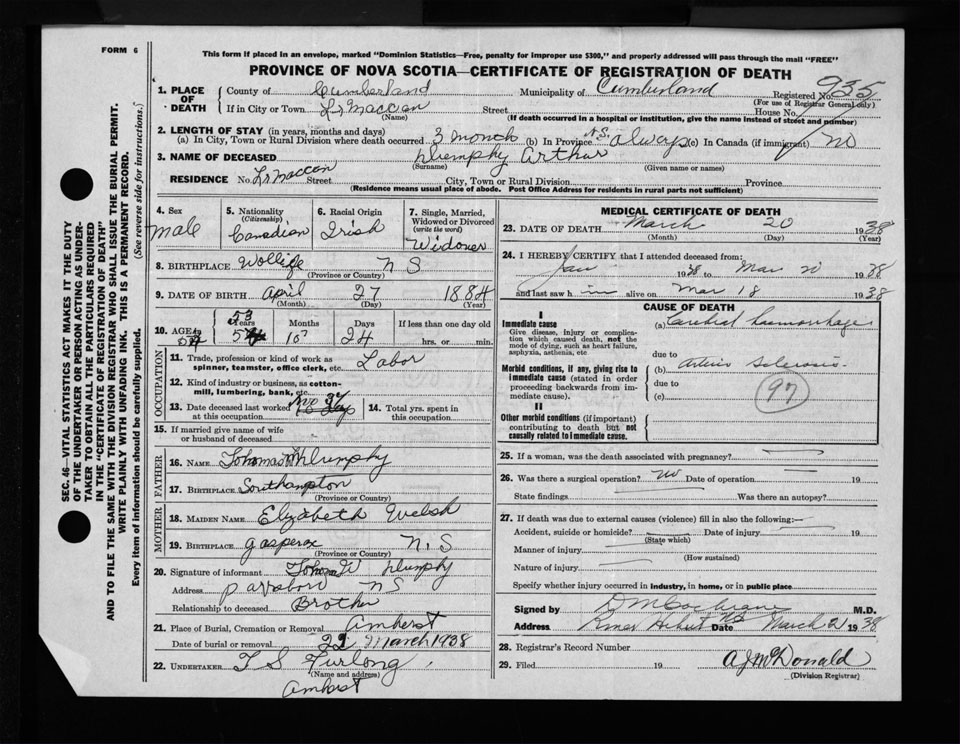 FORM 6
This form if placed in an envelope, marked "Dominion Statistics—Free, penalty for improper use $300," and properly addressed will pass through the mail "FREE"
PROVINCE OF NOVA SCOTIA—CERTIFICATE OF REGISTRATION OF DEATH
SEC. 46—VITAL STATISTICS ACT MAKES IT THE DUTY
OF THE UNDERTAKER OR PERSON ACTING AS UNDER-
TAKER TO OBTAIN ALL THE PARTICULARS REQUIRED
IN THE "CERTIFICATE OF REGISTRATION OF DEATH"
AND TO FILE THE SAME WITH THE DIVISION REGISTRAR WHO SHALL ISSUE THE BURIAL PERMIT.
WRITE PLAINLY WITH UNFADING INK. THIS IS A PERMANENT RECORD.
Every item of information should be carefully supplied. (See reverse side for instructions.)
1. PLACE OF DEATH
County of Cumberland Municipality of Cumberland Registered No. 935
(For use of Registrar General only)
If in City or Town Maccan Street House No.
(Name) (If death occurred in a hospital or institution, give the name instead of street and number)
2. LENGTH OF STAY (in years, months and days)
(a) In City, Town or Rural Division where death occurred 3 month (b) In Province N.S. always (c) In Canada (if immigrant) no
3. NAME OF DECEASED Dumphy Arthur
(Surname) (Given name or names)
RESIDENCE No. Maccan Street City, Town or Rural Division Province
(Residence means usual place of abode. Post Office Address for residents in rural parts not sufficient)
4. Sex
male
5. Nationality (Citizenship)
Canadian
6. Racial Origin
Irish
7. Single, Married, Widowed or Divorced (write the word)
Widower
8. BIRTHPLACE N S
(Province or County)
9. DATE OF BIRTH April 27 1884
(Month) (Day) (Year)
10. AGE 53 Years 10 Months 24 Days If less than one day old
hrs. or min.
OCCUPATION
11. Trade, profession or kind of work as
spinner, teamster, office clerk, etc. Labor
12. Kind of industry or business, as cotton-
mill, lumbering, bank, etc.
13. Date deceased last worked
at this occupation
14. Total yrs. spent in
this occupation
15. If married give name of wife
or husband of deceased
FATHER
16. NAME Dumphy
17. BIRTHPLACE Southampton
(Province or County)
MOTHER
18. MAIDEN NAME Elizabeth Welsh
19. BIRTHPLACE N.S
(Province or County)
20. Signature of informant Dumphy
Address NS
Relationship to deceased Brother
21. Place of Burial, Cremation or Removal Amherst
Date of burial or removal 22 March 1938
22. UNDERTAKER T S Furlong
(Name and address)
Amherst
MEDICAL CERTIFICATE OF DEATH
23. DATE OF DEATH March 20 1938
(Month) (Day) (Year)
24. I HEREBY CERTIFY that I attended deceased from:
Jan 1938 to Mar 20 1938
and last saw him alive on Mar 18 1938
CAUSE OF DEATH
I
Immediate cause
Give disease, injury or complica-
tion which caused death, not the
mode of dying, such as heart failure,
asphyxia, asthenia, etc
(a) Cerebral haemorrhage
due to
Morbid conditions, if any, giving rise to
immediate cause (stated in order
proceeding backwards from im-
mediate cause).
(b) arterio sclerosis
due to
(c)
97
II
Other morbid conditions (if important)
contributing to death but not
causally related to immediate cause.
25. If a woman, was the death associated with pregnancy?
26. Was there a surgical operation? no Date of operation 19
State findings Was there an autopsy?
27. If death was due to external causes (violence) fill in also the following:—
Accident, suicide or homicide? Date of injury 19
(State which)
Manner of injury
(How sustained)
Nature of injury
Specify whether injury occurred in industry, in home, or in public place
Signed by D M Cochrane M.D.
Address River Hebert NS Date March 21 1938
28. Registrar's Record Number
29. Filed 19 A J McDonald
(Division Registrar)